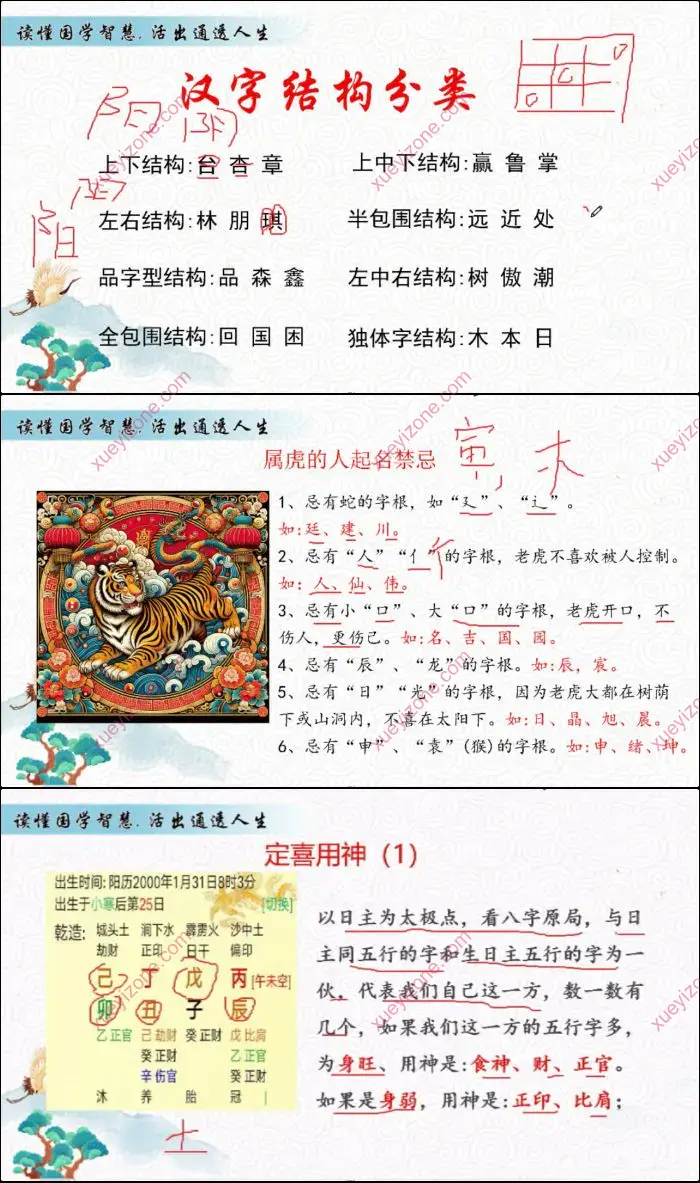 读懂国学智慧.活出通透人生
汉字结构分类
上下结构:台 杏 章
上中下结构:赢 鲁 掌
左右结构:林 朋 琪
半包围结构:远 近 处
品字型结构:品 森 鑫
左中右结构:树 傲 潮
全包围结构:回 国 困
独体字结构:木 本 日
xueyizone.com
读懂国学智慧.活出通透人生
属虎的人起名禁忌
寅, 木
1、忌有蛇的字根，如“廴”、“辶”。
如:廷、建、川。
2、忌有“人”“亻”的字根，老虎不喜欢被人控制。
如: 人、仙、伟。
3、忌有小“口”、大“口”的字根，老虎开口，不
伤人，更伤己。如:名、吉、国、园。
4、忌有“辰”、“龙”的字根。如:辰，宸。
5、忌有“日”“光”的字根，因为老虎大都在树荫
下或山洞内，不喜在太阳下。如:日、晶、旭、晨。
6、忌有“申”、“袁”(猴)的字根。如:申、绪、坤。
xueyizone.com
读懂国学智慧.活出通透人生
定喜用神（1）
出生时间: 阳历2000年1月31日8时3分
出生于小寒后第25日 [切换]
乾造: 城头土 涧下水 霹雳火 沙中土
劫财 正印 日干 偏印
己 丁 戊 丙 [午未空]
卯 丑 子 辰
乙正官 己劫财 癸正财 戊比肩
癸正财 乙正官
辛伤官 癸正财
沐 养 胎 冠
土
以日主为太极点，看八字原局，与日
主同五行的字和生日主五行的字为一
伙，代表我们自己这一方，数一数有
几个，如果我们这一方的五行字多，
为身旺、用神是:食神、财、正官。
如果是身弱，用神是:正印、比肩；
xueyizone.com